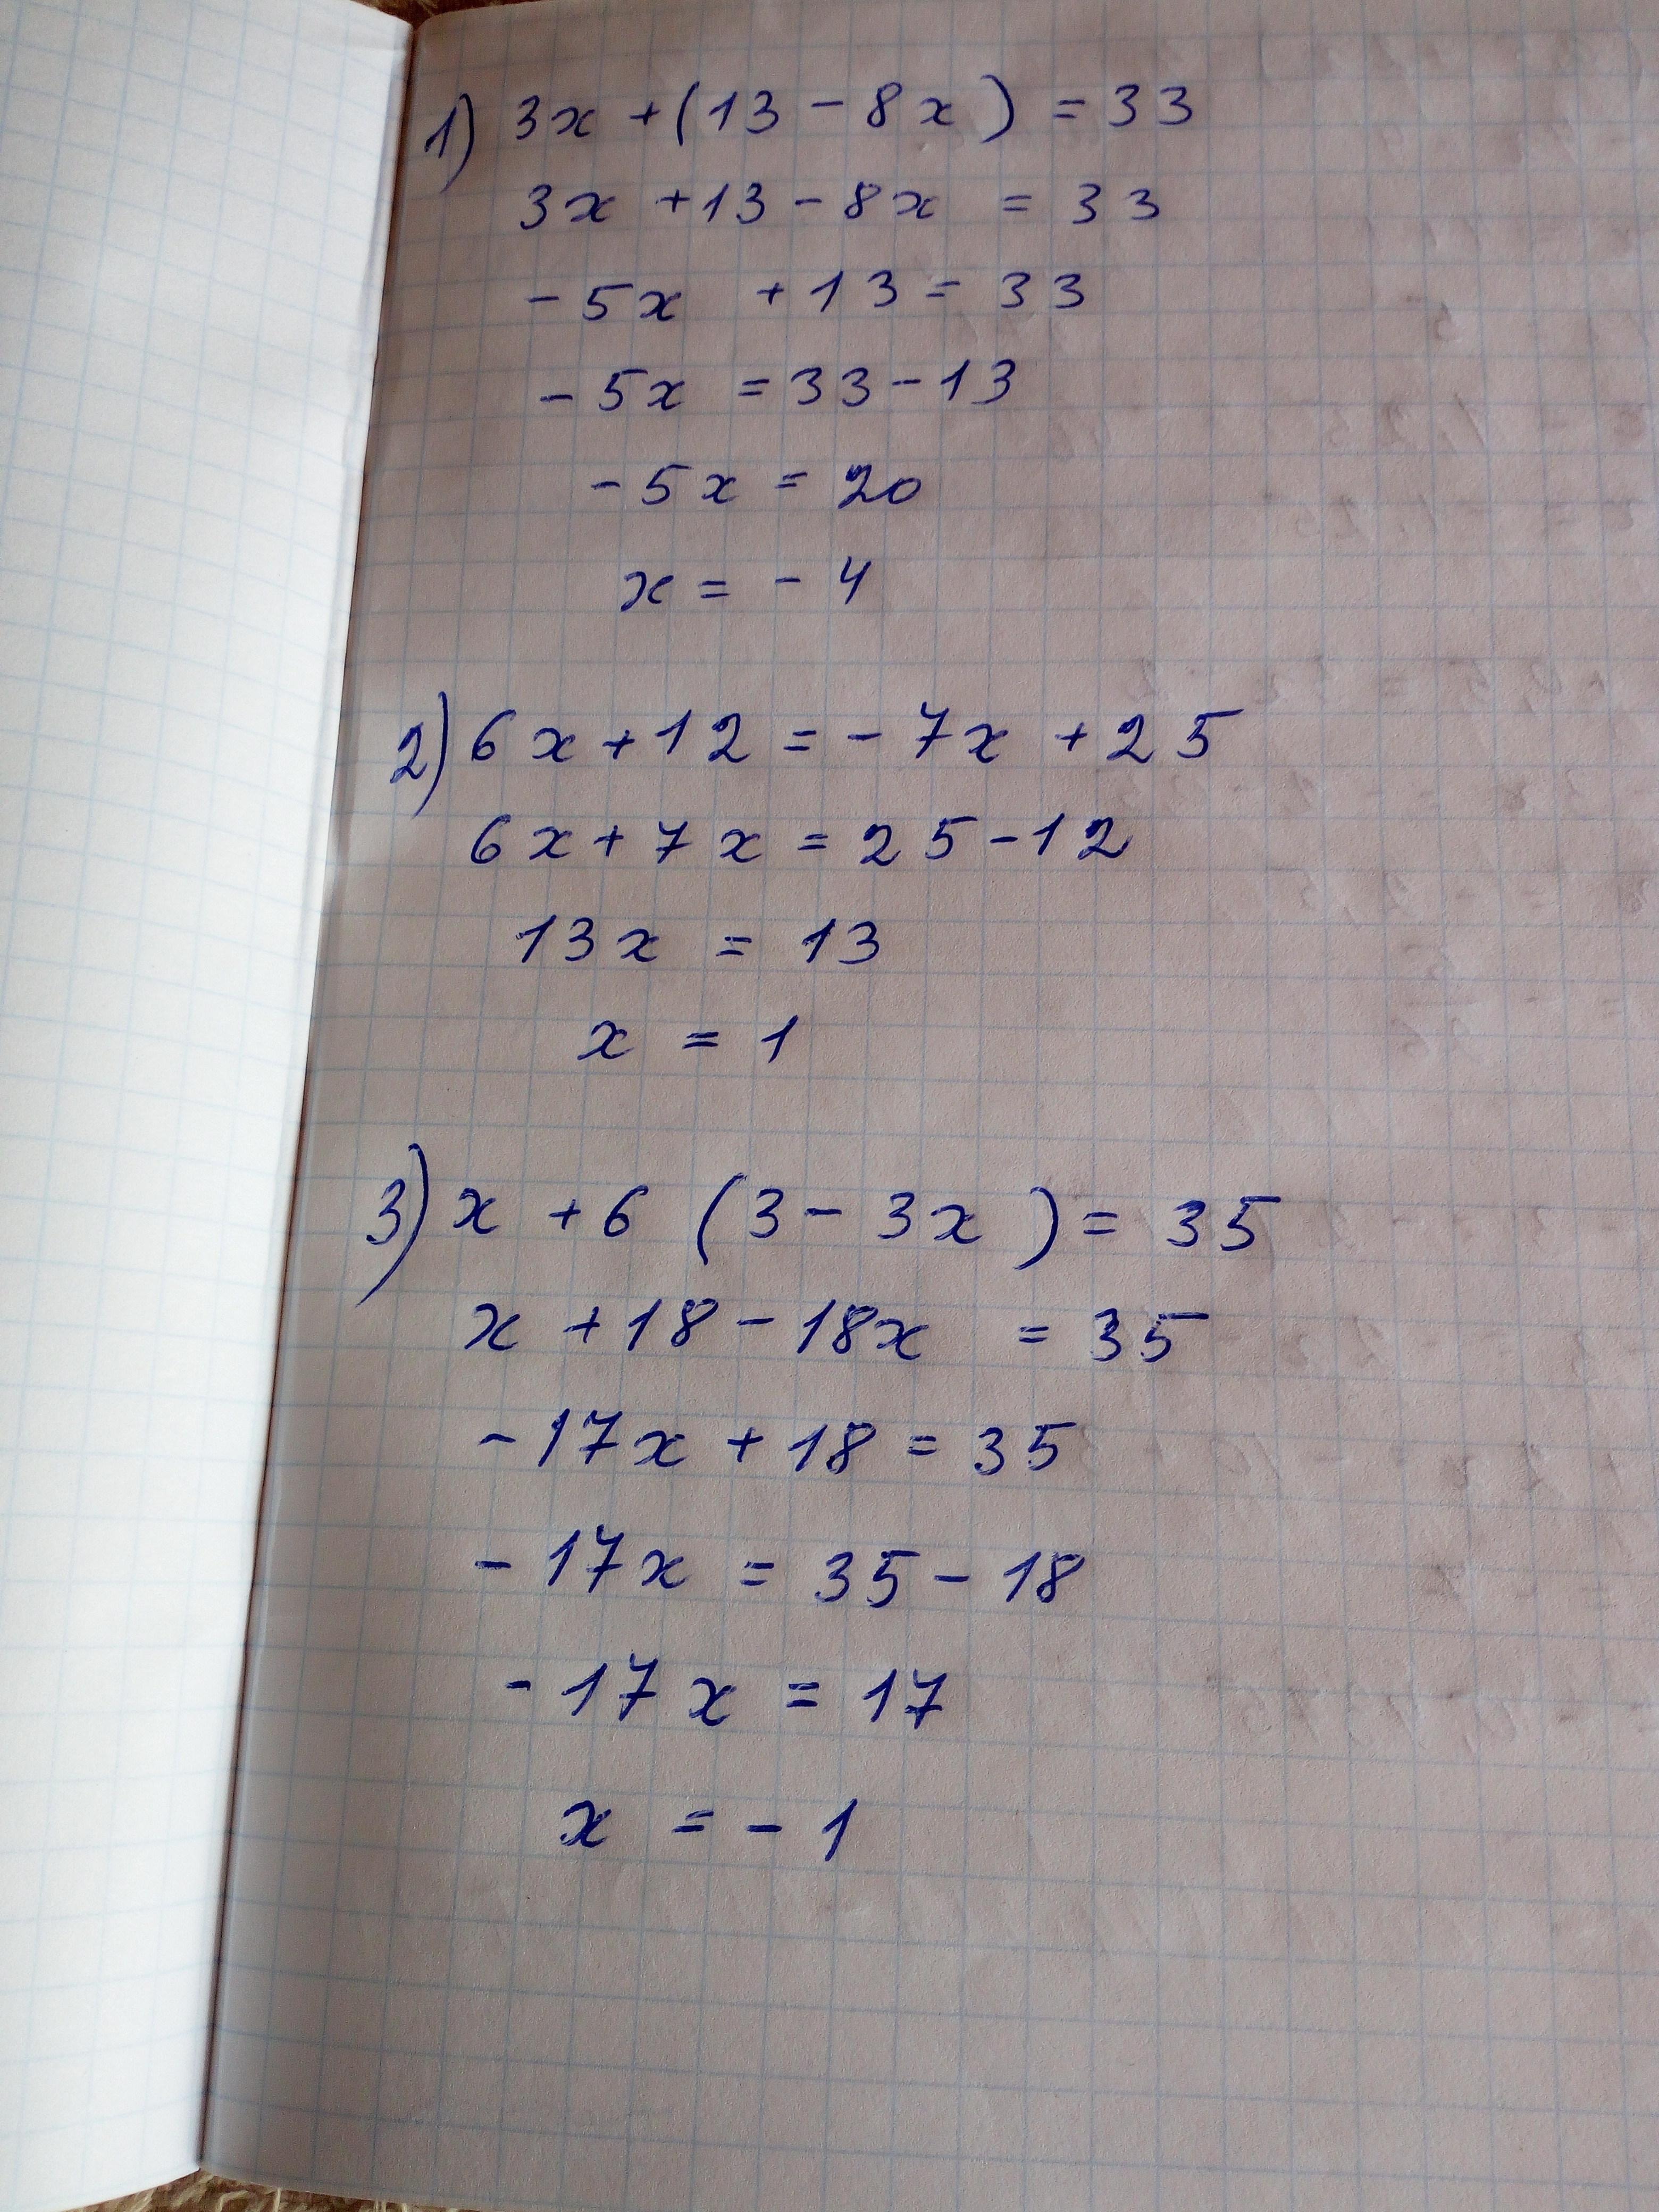 1) 3x + (13 - 8x) = 33
3x + 13 - 8x = 33
- 5x + 13 = 33
- 5x = 33 - 13
- 5x = 20
x = - 4
2) 6x + 12 = - 7x + 25
6x + 7x = 25 - 12
13x = 13
x = 1
3) x + 6 (3 - 3x) = 35
x + 18 - 18x = 35
- 17x + 18 = 35
- 17x = 35 - 18
- 17x = 17
x = - 1